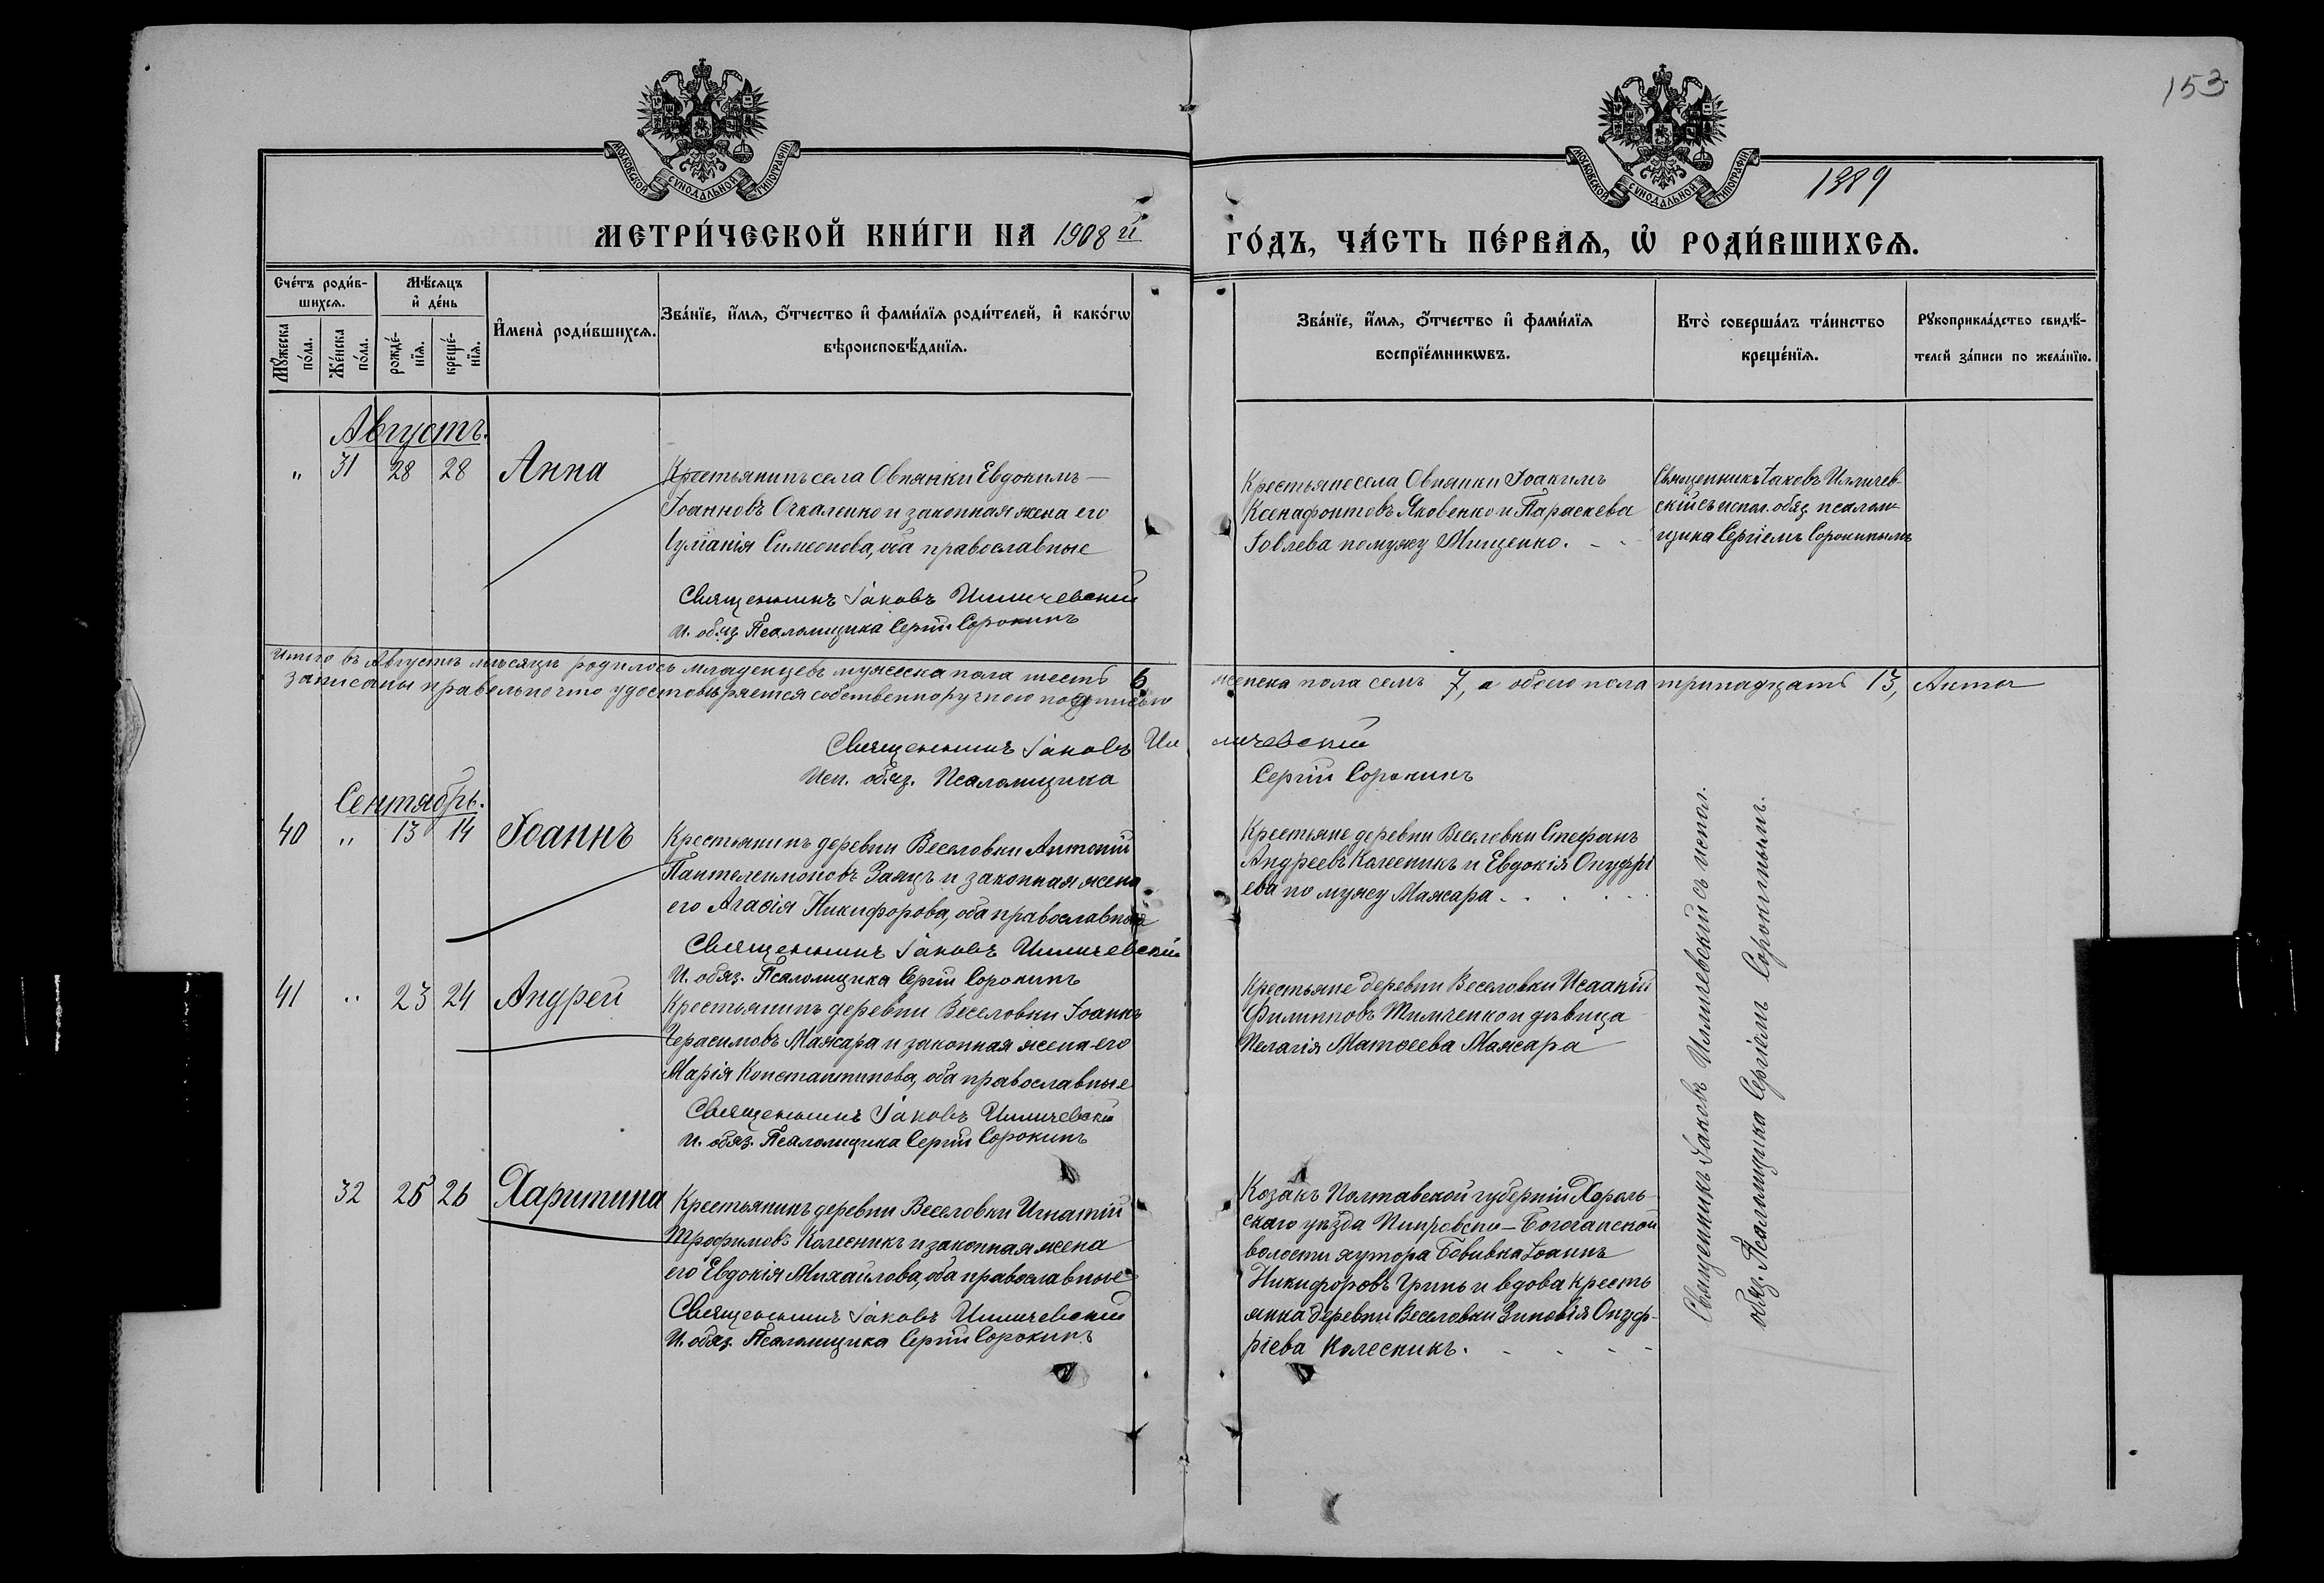 153
МОСКОВСКОЙ СѴНОДАЛЬНОЙ ТИПОГРАФІИ
МОСКОВСКОЙ СѴНОДАЛЬНОЙ ТИПОГРАФІИ
1889
МЕТРИ́ЧЕСКОЙ КНИ́ГИ НА 1908 й
ГО́ДЪ, ЧА́СТЬ ПЕ́РВАЯ, Ѡ҆ РОДИ́ВШИХСЯ.
Сче́тъ роди́в-
шихся.
Мѣ́сяцъ
и҆ де́нь
Му́жеска
по́ла.
Же́нска
по́ла.
рожде́-
нїя.
креще́-
нїя.
И҆мена̀ роди́вшихся.
Зва́нїе, и҆́мя, ѻ҆́тчество и҆ фами́лїя роди́телей, и҆ како́гѡ
вѣроисповѣ́данїя.
Зва́нїе, и҆́мя, ѻ҆́тчество и҆ фами́лїя
воспрїе́мникѡвъ.
Кто̀ соверша́лъ та́инство
креще́нїя.
Рꙋкоприкла́дство свидѣ́-
телей за́писи по жела́нїю.
Августъ.
" 31 28 28 Анна
Крестьянинъ села Овнянки Евдокимъ
Іоанновъ Очкаленко и законная жена его
Іуліанія Симеонова, оба православные
Священникъ Іаковъ Илличевскій
И. обяз. Псаломщика Сергій Сорокинъ
Крестьяне села Овнянки Іоакимъ
Ксенафонтовъ Яковенко и Параскева
Іовлева по мужу Мищенко.
Священникъ Іаковъ Илличев-
скій съ испол. обяз. псалом-
щика Сергіемъ Сорокинымъ
Итого въ Августѣ мѣсяцѣ родилось младенцевъ мужеска пола шесть 6 женска пола семь 7, а обоего пола тринадцать 13, Акты
записаны правельно что удостовѣряется собственноручною подписью
Священникъ Іаковъ Илличевскій
Исп. обяз. Псаломщика Сергій Сорокинъ
Сентябрь.
40 " 13 14 Іоаннъ
Крестьянинъ деревни Веселовки Антоній
Пантелеимоновъ Заяцъ и законная жена
его Агафія Никифорова, оба православные
Священникъ Іаковъ Илличевскій
И. обяз. Псаломщика Сергій Сорокинъ
Крестьяне деревни Веселовки Стефанъ
Андреевъ Колесникъ и Евдокія Онуфрі
ева по мужу Мажара.
41 " 23 24 Андрей
Крестьянинъ деревни Веселовки Іоаннъ
Герасимовъ Мажара и законная жена его
Марія Константинова, оба православные
Священникъ Іаковъ Илличевскій
И. обяз. Псаломщика Сергій Сорокинъ
Крестьяне деревни Веселовки Исаакій
Филипповъ Тимченко и дѣвица
Пелагія Матѳеева Мажара
32 25 26 Харитина
Крестьянинъ деревни Веселовки Игнатій
Трофимовъ Колесникъ и законная жена
его Евдокія Михайлова, оба православные
Священникъ Іаковъ Илличевскій
И. обяз. Псаломщика Сергій Сорокинъ
Козакъ Полтавской губерніи Хороль-
скаго уѣзда
волости хутора Бовивка Іоаннъ
Никифоровъ Гринь и вдова кресть
янка деревни Веселовки Зиновія Онуф-
ріева Колесникъ.
Священникъ Іаковъ Илличевскій съ испол.
обяз. Псаломщика Сергіемъ Сорокинымъ.